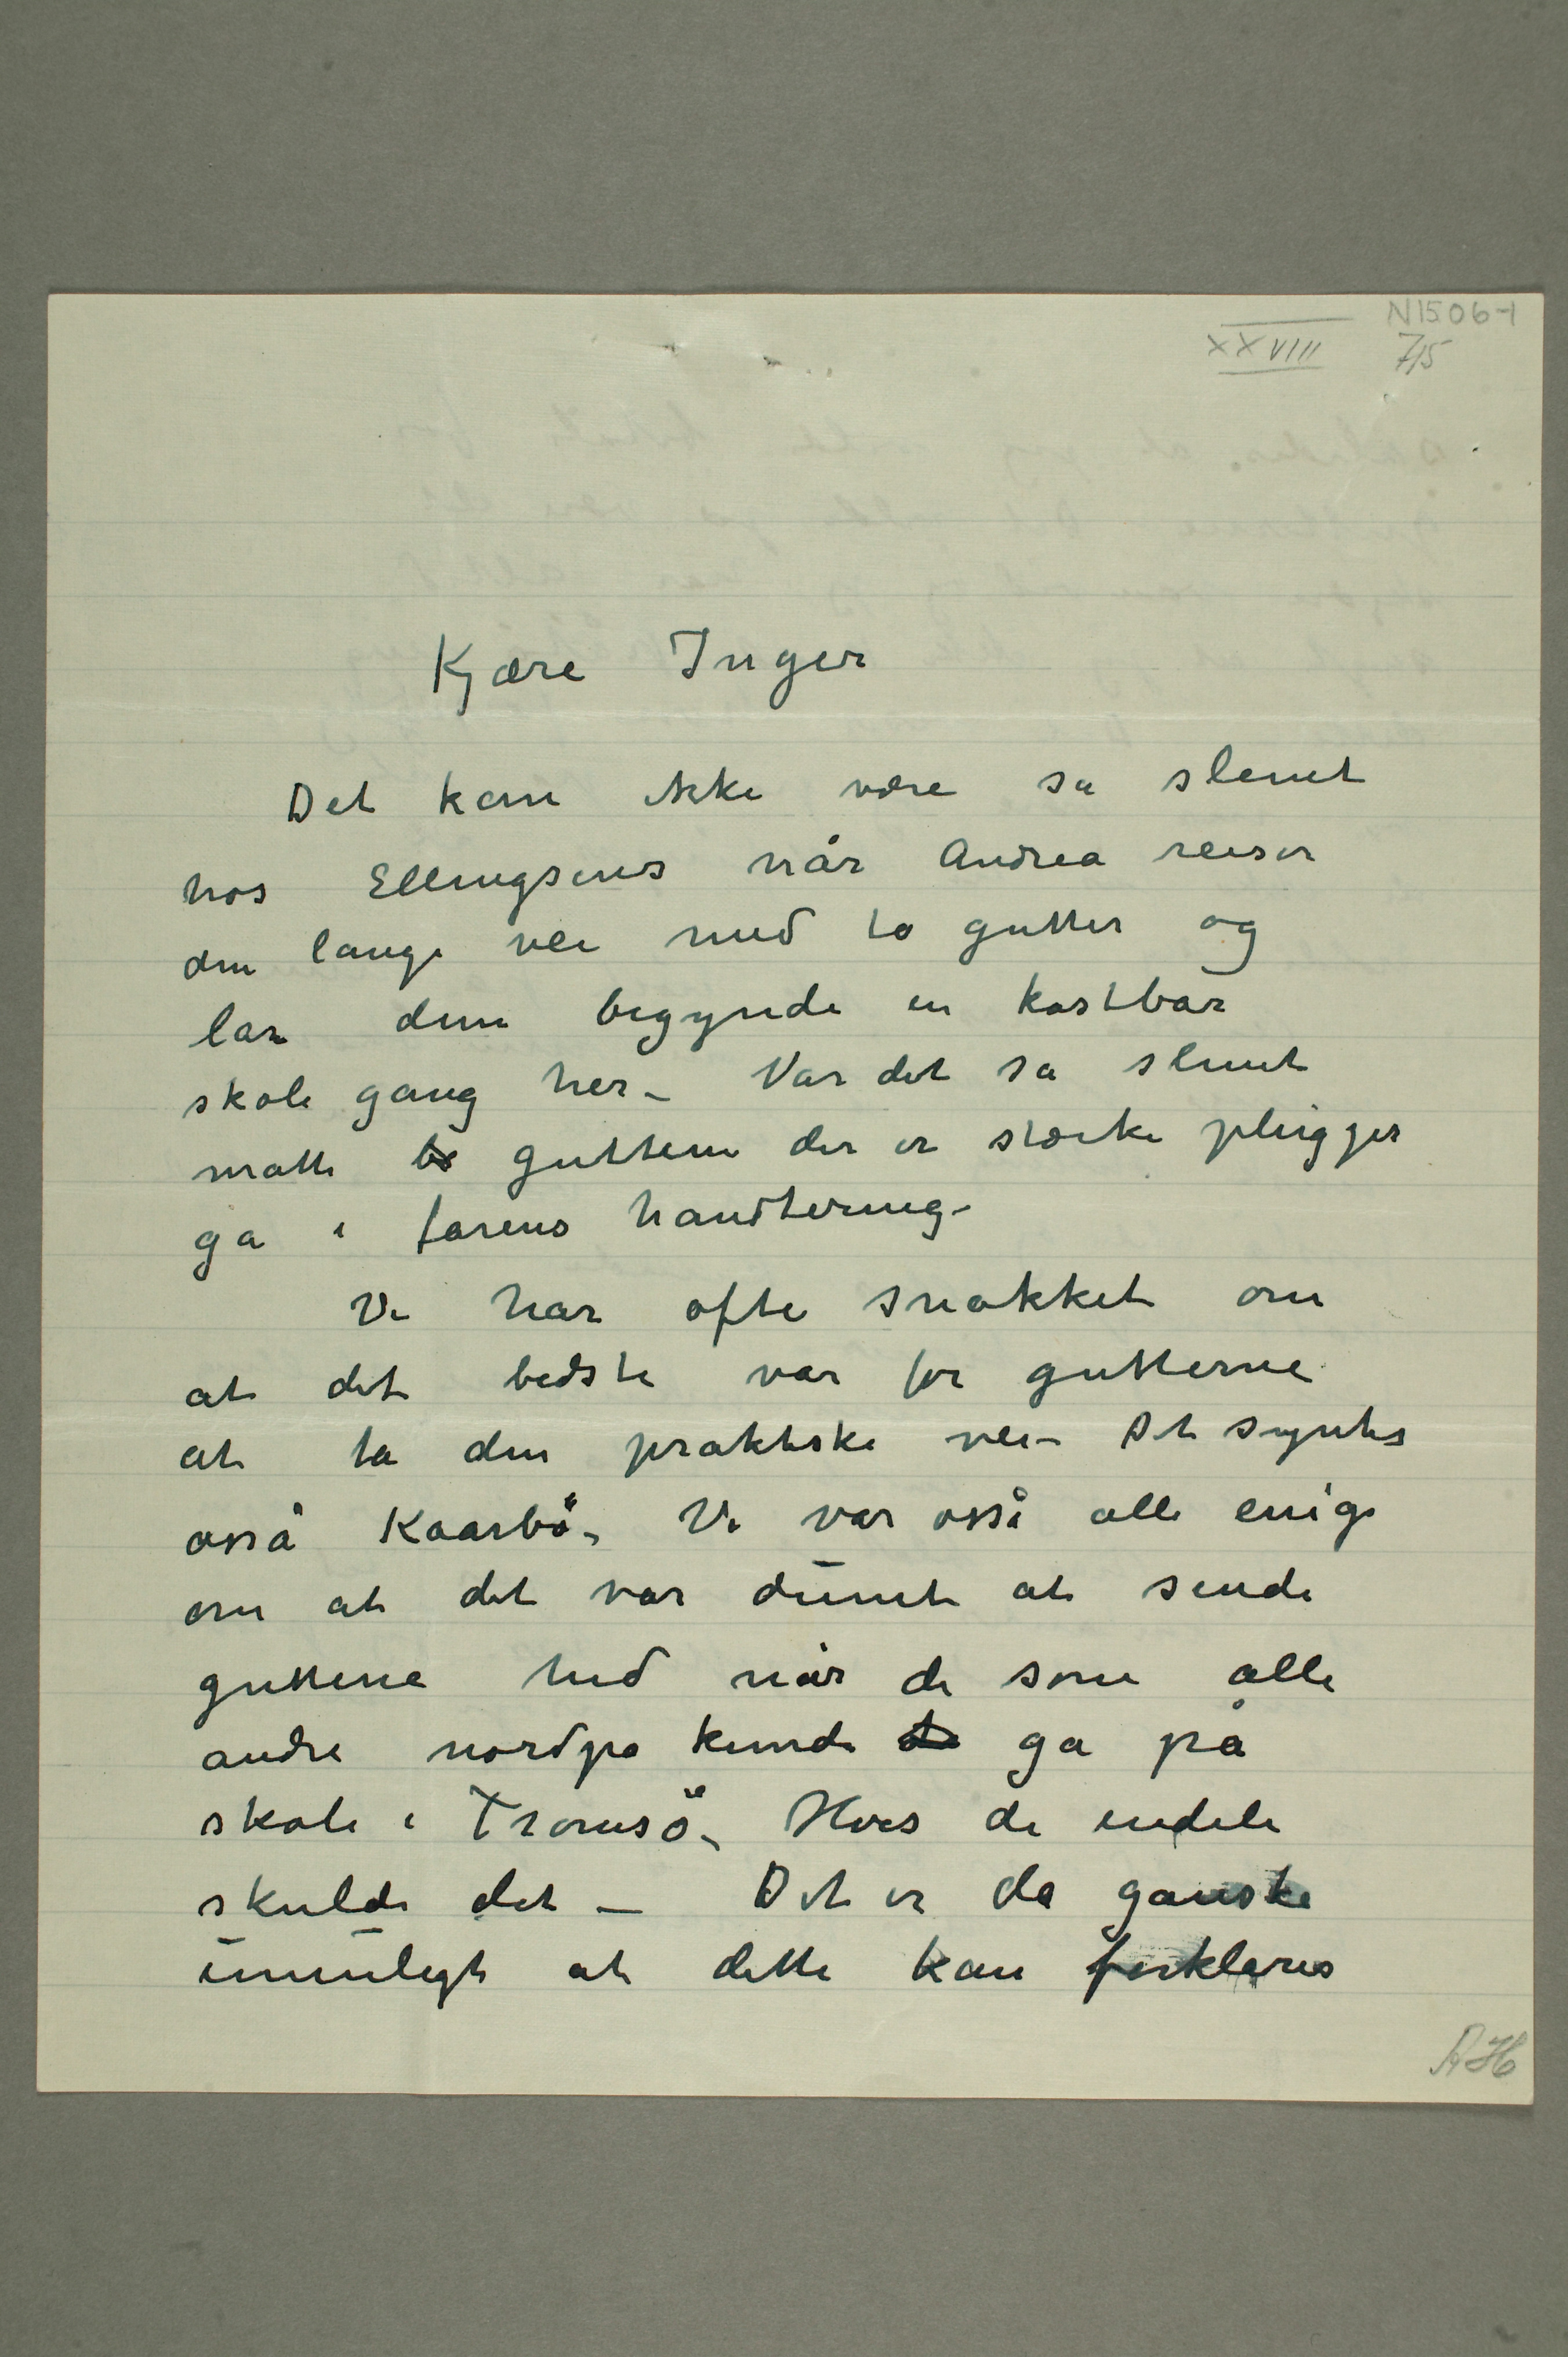 N1506-1
XXVIII 715
Kjære Inger
Det kan ikke være så slemt
hos Ellingsens når Andrea reiser
den lange vei med to gutter og
lar dem begynde en kostbar
skole gang her – Var det så slemt
måtte guttene der er stærke plugger
gå i farens handtering –
Vi har ofte snakket om
at det bedste var for gutterne
at ta den praktiske vei – Det syntes
osså Kaarbö – Vi var osså alle enige
om at det var dumt at sende
guttene hid når de som alle
andre nordpå kunde gå på
skole i Tromsö – Hvis de endeli
skulde det – Det er da ganske
umuligt at dette kan forklares
RH